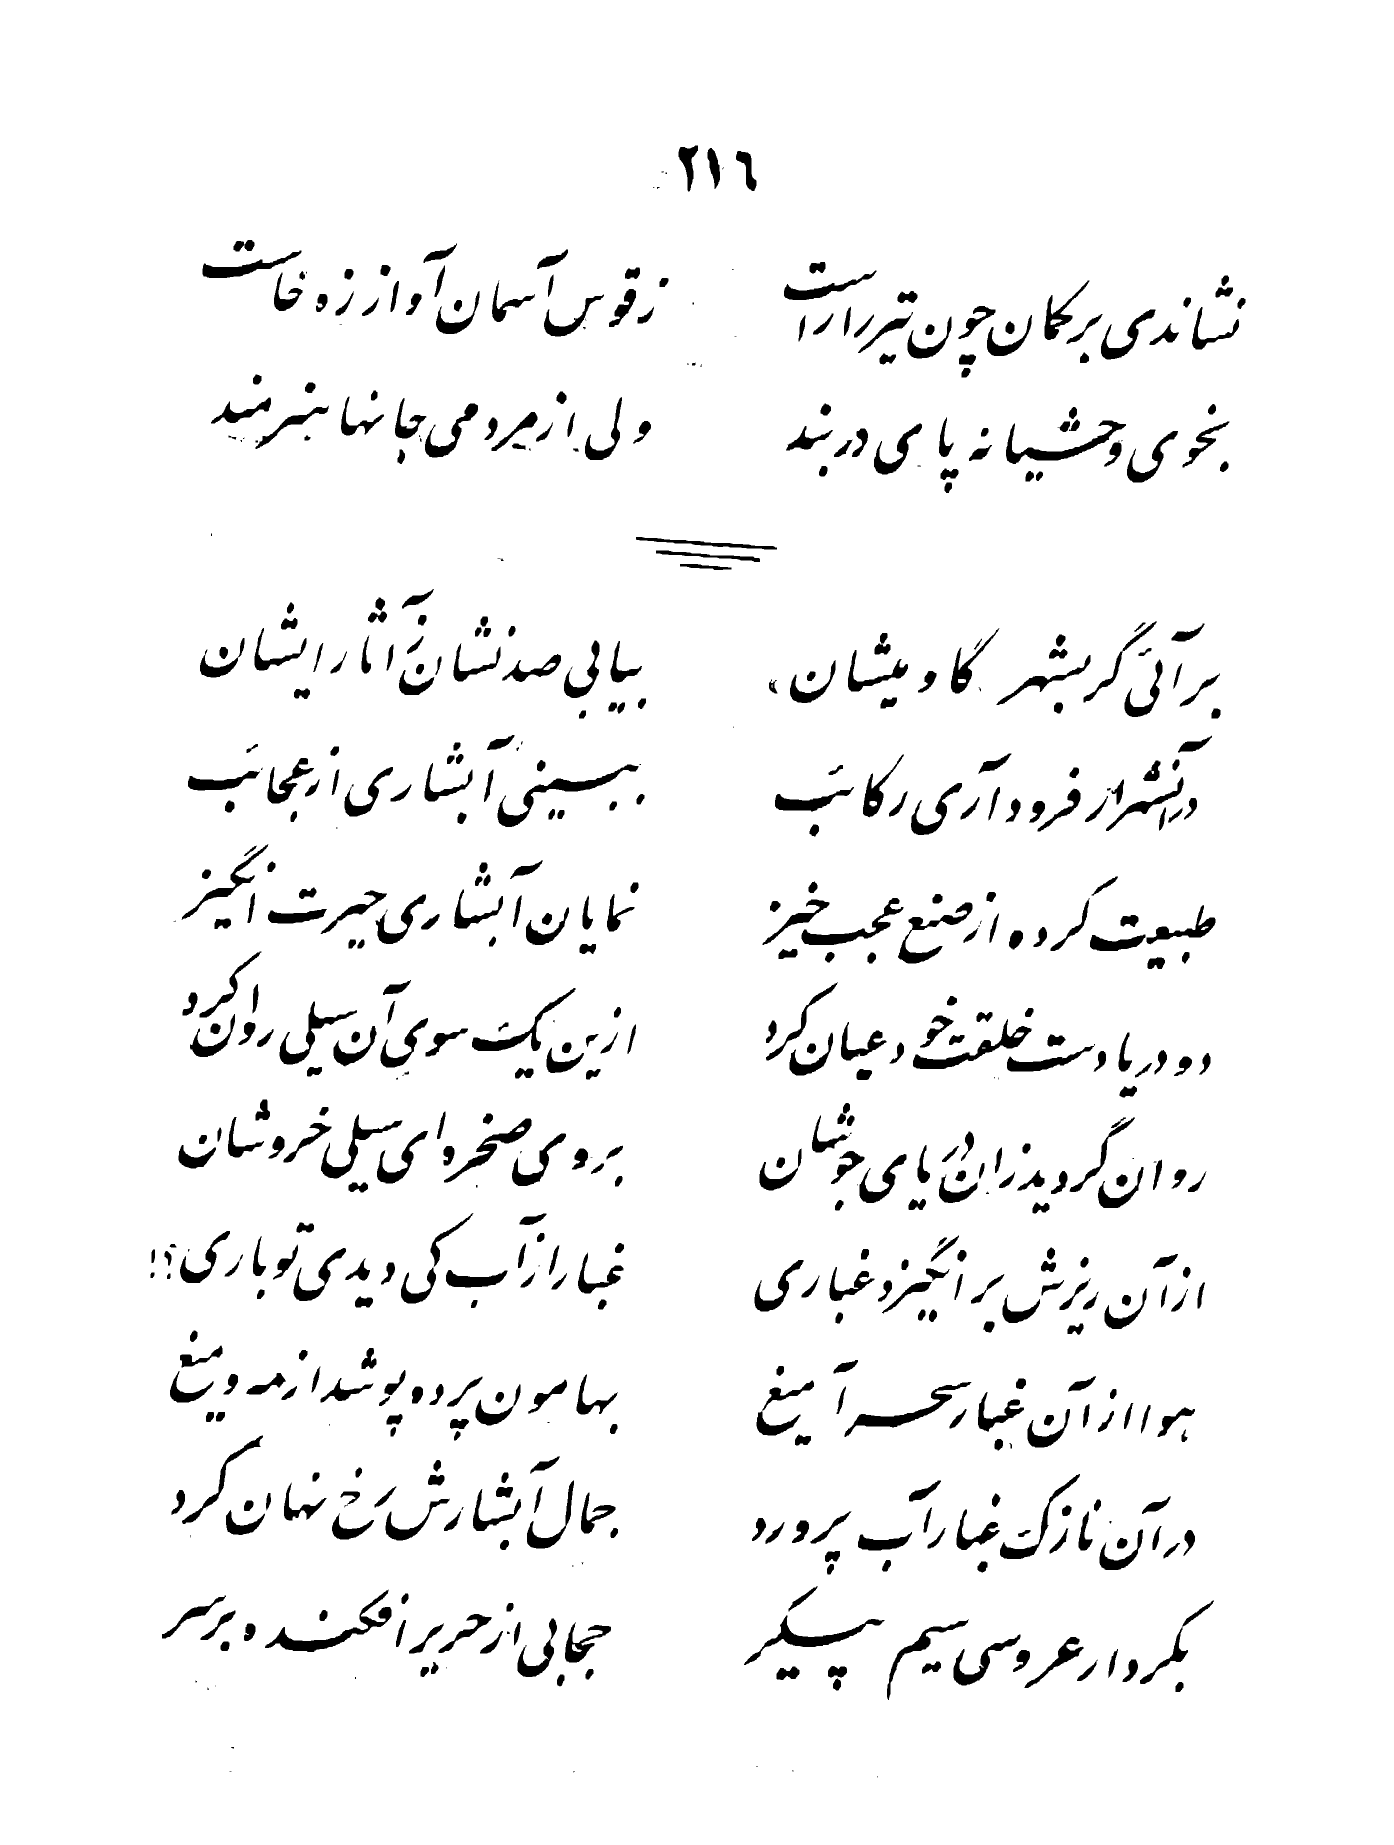 ٢١٦
نشاندی بر کمان چون تیر را راست زقوس آسمان آواز زه خاست
بخوی وحشیانه پای در بند ولی از مردمی جانها هنرمند
بر آئی گر بشهر گاو میشان، بیابی صد نشان ز آثار ایشان
در آنشهر ار فرود آری رکائب ببینی آبشاری از عجائب
طبیعت کرده از صنع عجب خیز نمایان آبشاری حیرت انگیز
دو دریا دست خلقت خود عیان کرد از ین یک سوی آن سیلی روان کرد
روان گردید زان دریای جوشان بروی صخره ای سیلی خروشان
از آن ریزش بر انگیزد غباری غبار از آب کی دیدی تو باری؟!
هوا از آن غبار سحر آمیغ بهامون پرده پوشد از مه و میغ
در آن نازک غبار آب پرورد جمال آبشارش رخ نهان کرد
بکردار عروسی سیم پیکر حجابی از حریر افکنده بر سر